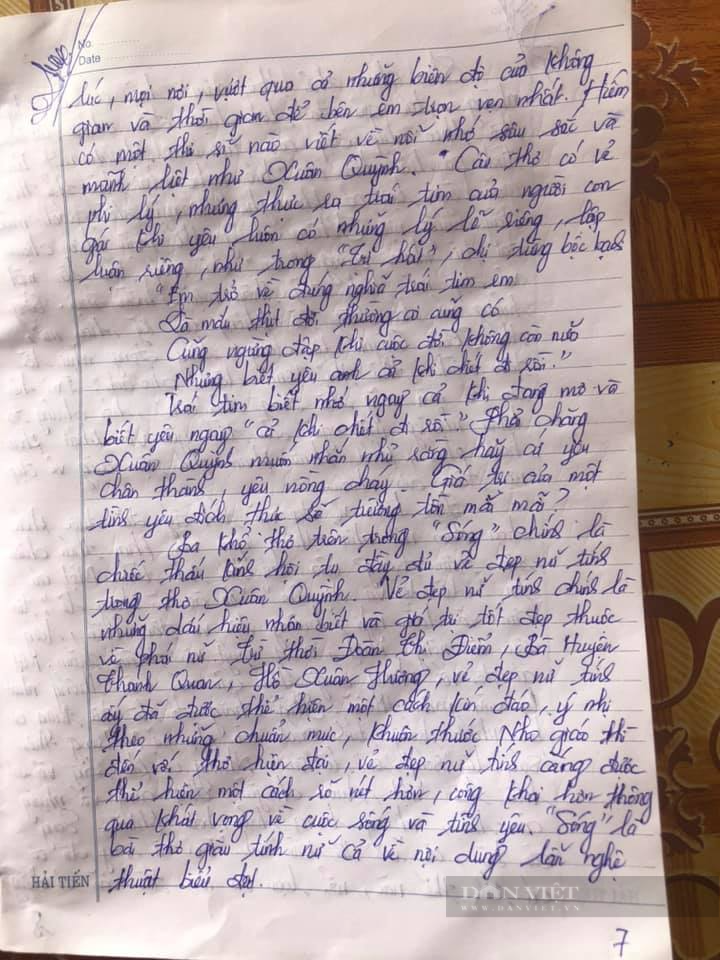 No.
Date
lúc, mọi nơi, vượt qua cả những biên độ của không
gian và thời gian để bên em trọn vẹn nhất. Hiếm
có một thi sĩ nào viết về nỗi nhớ sâu sắc và
mãnh liệt như Xuân Quỳnh. Câu thơ có vẻ
phi lý, nhưng thực ra trái tim của người con
gái khi yêu luôn có những lý lẽ riêng, lập
luận riêng, như trong "Tự hát", chị từng bộc bạch
"Em trở về đúng nghĩa trái tim em
Là máu thịt đời thường ai cũng có
Cũng ngừng đập khi cuộc đời không còn nữa
Nhưng biết yêu anh cả khi chết đi rồi."
Trái tim biết nhớ ngay cả khi đang mơ và
biết yêu ngay "cả khi chết đi rồi." Phải chăng
Xuân Quỳnh muốn nhắn nhủ rằng hãy cứ yêu
chân thành, yêu nồng cháy. Giá trị của một
tình yêu đích thực sẽ trường tồn mãi mãi?
Ba khổ thơ trên trong "Sóng" chính là
chiếc thấu kính hội tụ đầy đủ vẻ đẹp nữ tính
trong thơ Xuân Quỳnh. Vẻ đẹp nữ tính chính là
những dấu hiệu nhận biết và giá trị tốt đẹp thuộc
về phái nữ. Từ thời Đoàn Thị Điểm, Bà Huyện
Thanh Quan, Hồ Xuân Hương, vẻ đẹp nữ tính
ấy đã được thể hiện một cách kín đáo, ý nhị
theo những chuẩn mực, khuôn thước Nho giáo thì
đến với thơ hiện đại, vẻ đẹp nữ tính càng được
thể hiện một cách rõ nét hơn, công khai hơn thông
qua khát vọng về cuộc sống và tình yêu. "Sóng" là
bài thơ giàu tính nữ cả về nội dung lẫn nghệ
thuật biểu đạt.
HẢI TIẾN
DÂN VIỆT
WWW.DANVIET.VN
7